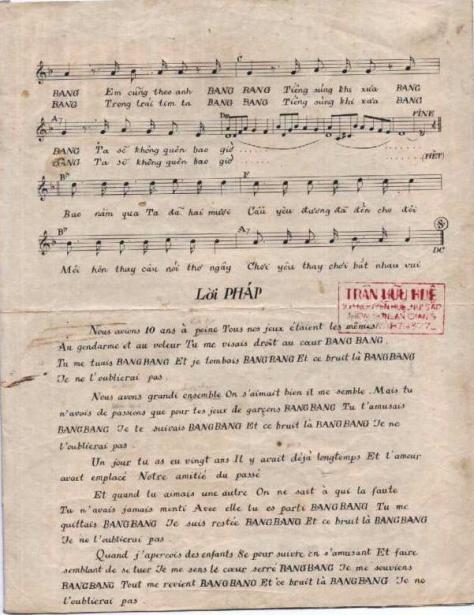 C
BANG Em cũng theo anh BANG BANG Tiếng súng khi xưa BANG
BANG Trong trái tim ta BANG BANG Tiếng súng khi xưa BANG
A7 Dm FINE
BANG Ta sẽ không quên bao giờ . . . .
BANG Ta sẽ không quên bao giờ . . . . (HẾT)
F
Bao năm qua Ta đã hai mươi Câu yêu đương đã đến cho đôi
A7
DC
Môi hôn thay câu nói thơ ngây Chơi yêu thay chơi bắt nhau vui
Lời PHÁP
TRẦN HỮU HUỆ
Nous avions 10 ans à peine Tous nos jeux étaient les mêmes
Au gendarme et au voleur Tu me visais droit au cœur BANG BANG.
Tu me tuais BANG BANG Et je tombais BANG BANG Et ce bruit là BANG BANG
Je ne l'oublierai pas.
Nous avons grandi ensemble On s'aimait bien il me semble. Mais tu
n'avais de passions que pour tes jeux de garçons BANG BANG Tu t'amusais
BANG BANG Je te suivais BANG BANG Et ce bruit là BANG BANG Je ne
l'oublierai pas.
Un jour tu as eu vingt ans Il y avait déjà longtemps Et l'amour
avait emplacé Notre amitié du passé
Et quand tu aimais une autre On ne sait à qui la faute
Tu n'avais jamais menti Avec elle tu es parti BANG BANG Tu me
quittais BANG BANG Je suis restée BANG BANG Et ce bruit là BANG BANG
Je ne l'oublierai pas.
Quand j'aperçois des enfants Se pour suivre en s'amusant Et faire
semblant de se tuer Je me sens le cœur serré BANG BANG Je me souviens
BANG BANG Tout me revient BANG BANG Et ce bruit là BANG BANG Je ne
l'oublierai pas